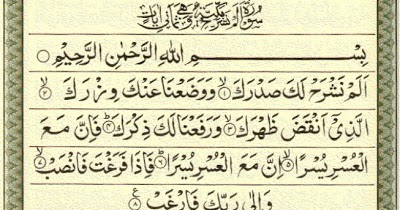 سورة الم نشرح مكية وهي ثماني آيات
بِسْمِ اللهِ الرَّحْمٰنِ الرَّحِيْمِ ○
اَلَمْ نَشْرَحْ لَكَ صَدْرَكَ ۝١ وَوَضَعْنَا عَنْكَ وِزْرَكَ ۝٢
الَّذِيْٓ اَنْقَضَ ظَهْرَكَ ۝٣ وَرَفَعْنَا لَكَ ذِكْرَكَ ۝٤ فَاِنَّ مَعَ
الْعُسْرِ يُسْرًا ۝٥ اِنَّ مَعَ الْعُسْرِ يُسْرًا ۝٦ فَاِذَا فَرَغْتَ فَانْصَبْ ۝٧
وَاِلٰى رَبِّكَ فَارْغَبْ ۝٨